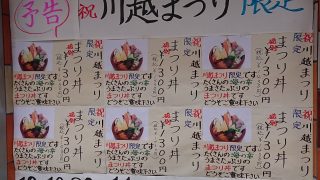 予告
祝 川越まつり 限定
祝川越まつり
限定
まつり丼
1300円
川越まつり限定です
たくさんの海の幸
うまさたっぷりの
まつり丼です
どうぞご賞味下さい
祝川越まつり
限定
まつり丼
1300円
川越まつり限定です
たくさんの海の幸
うまさたっぷりの
まつり丼です
どうぞご賞味下さい
祝川越まつり
限定
まつり丼
1300円
川越まつり限定です
たくさんの海の幸
うまさたっぷりの
まつり丼です
どうぞご賞味下さい
祝川越まつり
限定
まつり丼
1300円
川越まつり限定です
たくさんの海の幸
うまさたっぷりの
まつり丼です
どうぞご賞味下さい
祝川越まつり
限定
まつり丼
1300円
川越まつり限定です
たくさんの海の幸
うまさたっぷりの
まつり丼です
どうぞご賞味下さい
祝川越まつり
限定
まつり丼
1300円
川越まつり限定です
たくさんの海の幸
うまさたっぷりの
まつり丼です
どうぞご賞味下さい